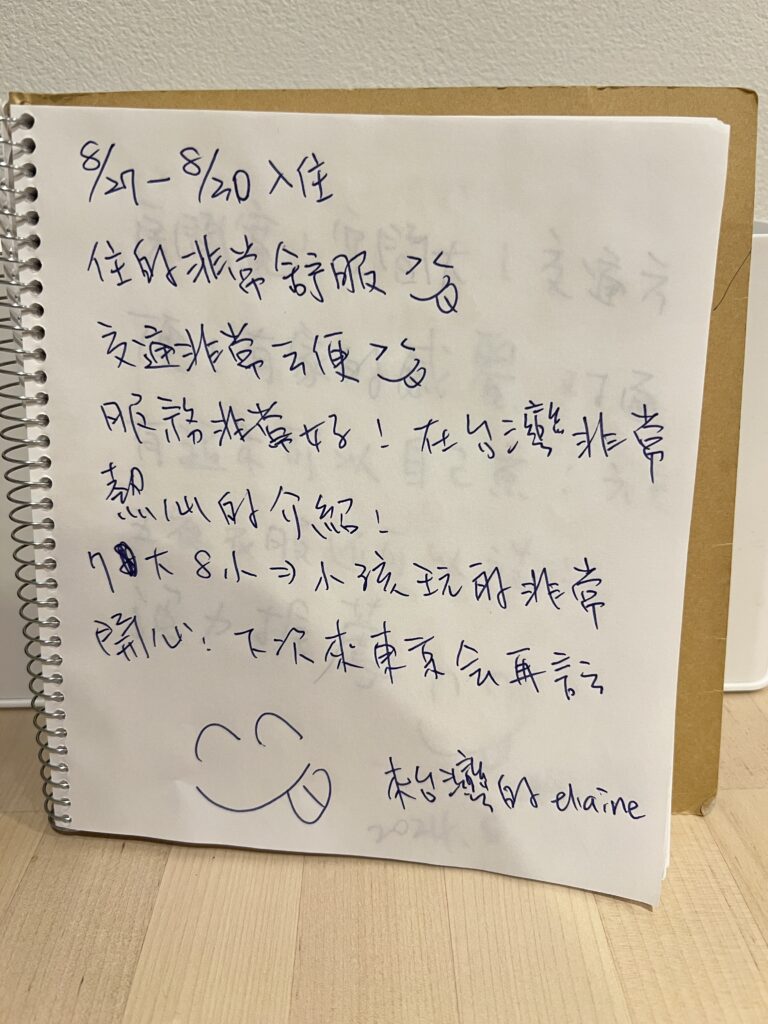 8/27 - 8/30 入住
住的非常舒服
交通非常方便
服務非常好！在台灣非常
熱心的介紹！
7大8小⇒小孩玩的非常
開心！下次來東京会再訂
來台灣的 elaine